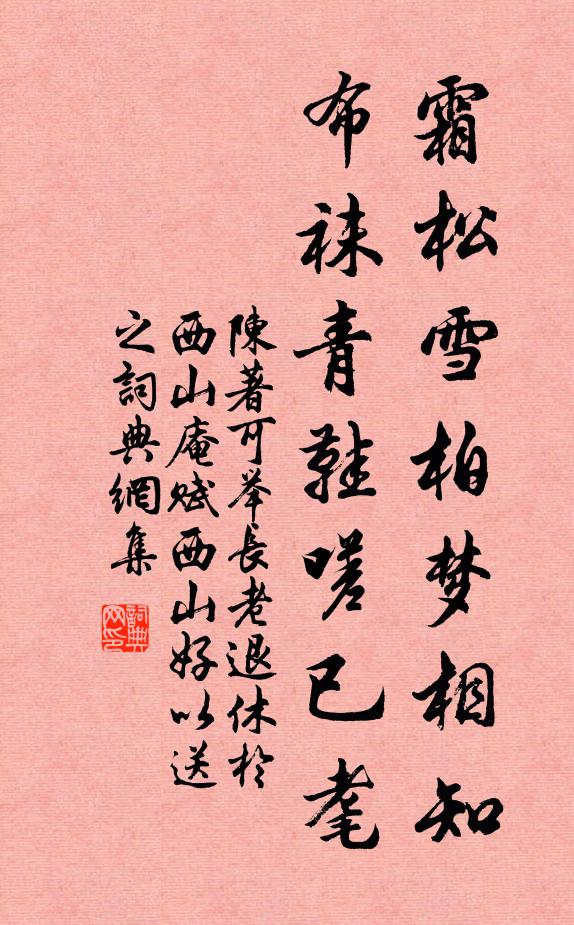 霜松雪柏梦相知
布袜青鞋嗟已耄
陳著可举長老退休於
西山庵赋西山好以送
之詞典網集
詞典网印